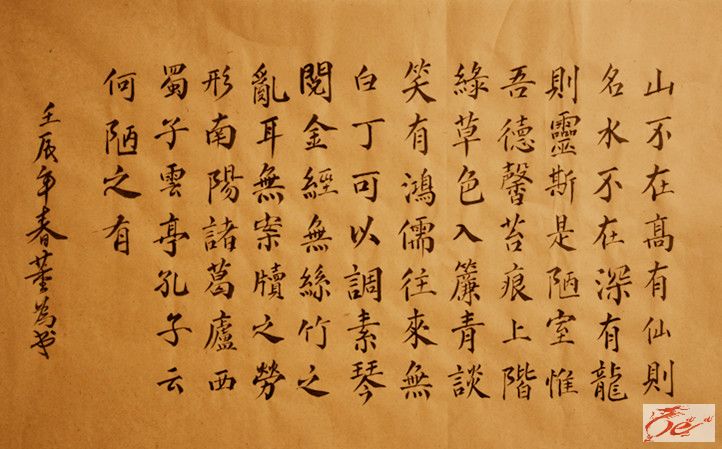 山不在髙有仙則
名水不在深有龍
則靈斯是陋室惟
吾德馨苔痕上階
綠草色入簾青談
笑有鴻儒往來無
白丁可以調素琴
閱金經無絲竹之
亂耳無案牘之勞
形南陽諸葛廬西
蜀子雲亭孔子云
何陋之有
壬辰年春董為书